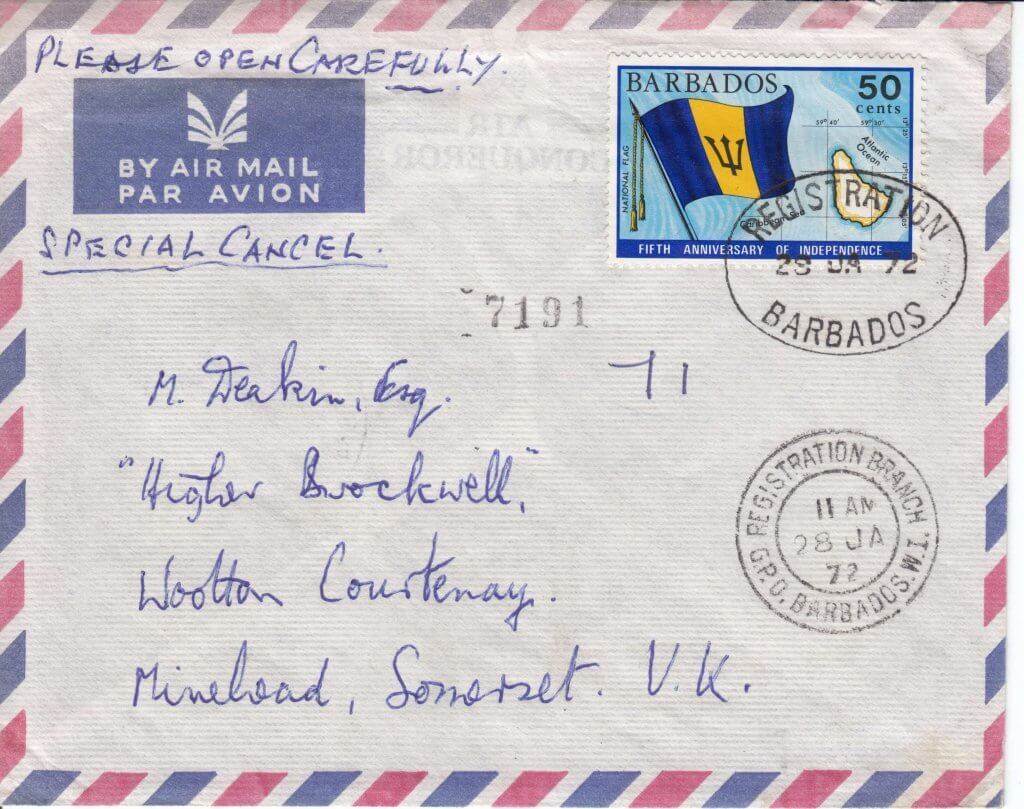 PLEASE OPEN CAREFULLY.
BY AIR MAIL
PAR AVION
SPECIAL CANCEL.
BARBADOS
50
cents
NATIONAL FLAG
59° 40'
59° 30'
Atlantic
Ocean
Caribbean Sea
FIFTH ANNIVERSARY OF INDEPENDENCE
REGISTRATION
28 JA 72
BARBADOS
7191
71
M. Deakin, Esq.
"Higher Brockwell",
Wootton Courtenay.
Minehead, Somerset. U.K.
REGISTRATION BRANCH
11 AM
28 JA
72
G.P.O. BARBADOS. W.I.